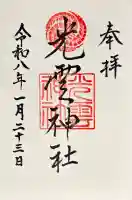 奉拝
光雲神社
令和八年一月二十三日